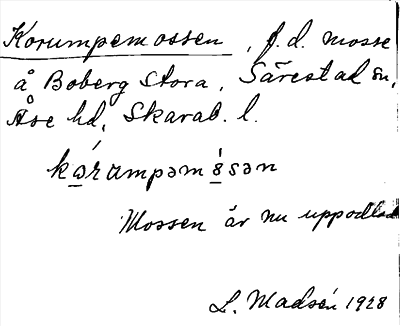 Korumpemossen, f.d. mosse
å Boberg Stora, Särestad sn,
Åse hd, Skarab. l.
kərumpəmåsən
Mossen är nu uppodlad
L. Madsén 1928